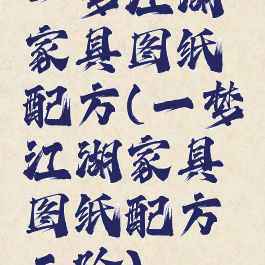 一梦江湖
家具图纸
配方(一梦
江湖家具
图纸配方